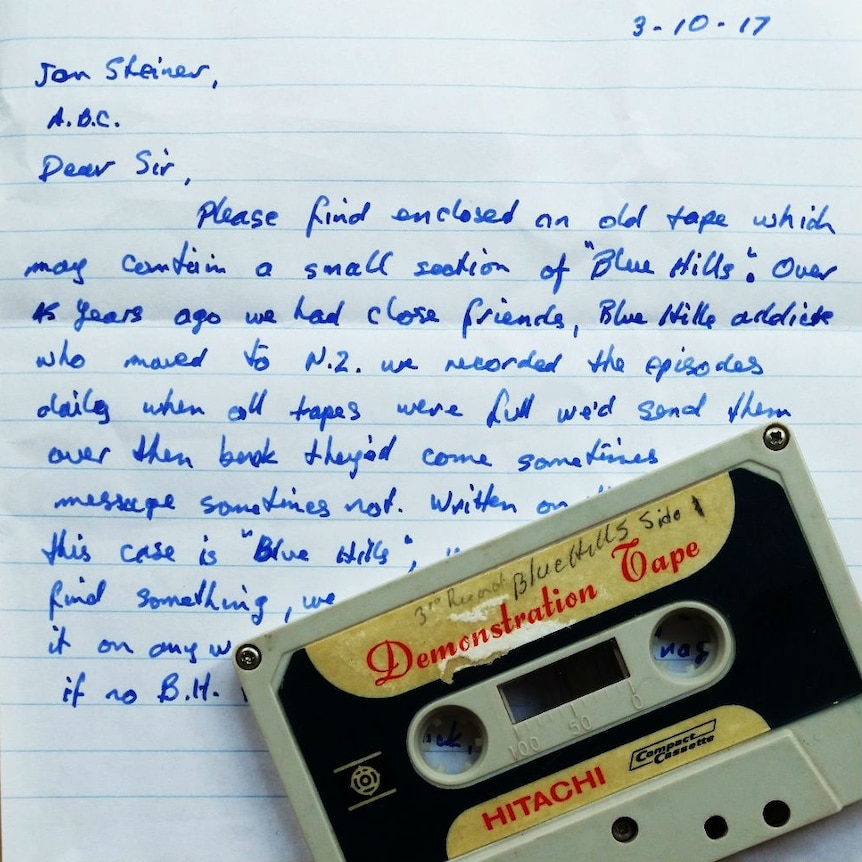 3-10-17
Jon Steiner,
A.B.C.
Dear Sir,
Please find enclosed an old tape which
may contain a small section of "Blue Hills". Over
45 years ago we had close friends, Blue Hills addicts
who moved to N.Z. we recorded the episodes
daily when all tapes were full we'd send them
over then back they'd come sometimes
message sometimes not. Written on
this case is "Blue Hills",
find something, we
it on any
if no B.H.
3rd Record Blue Hills Side 1
Demonstration Tape
100 50 0
HITACHI
Compact Cassette